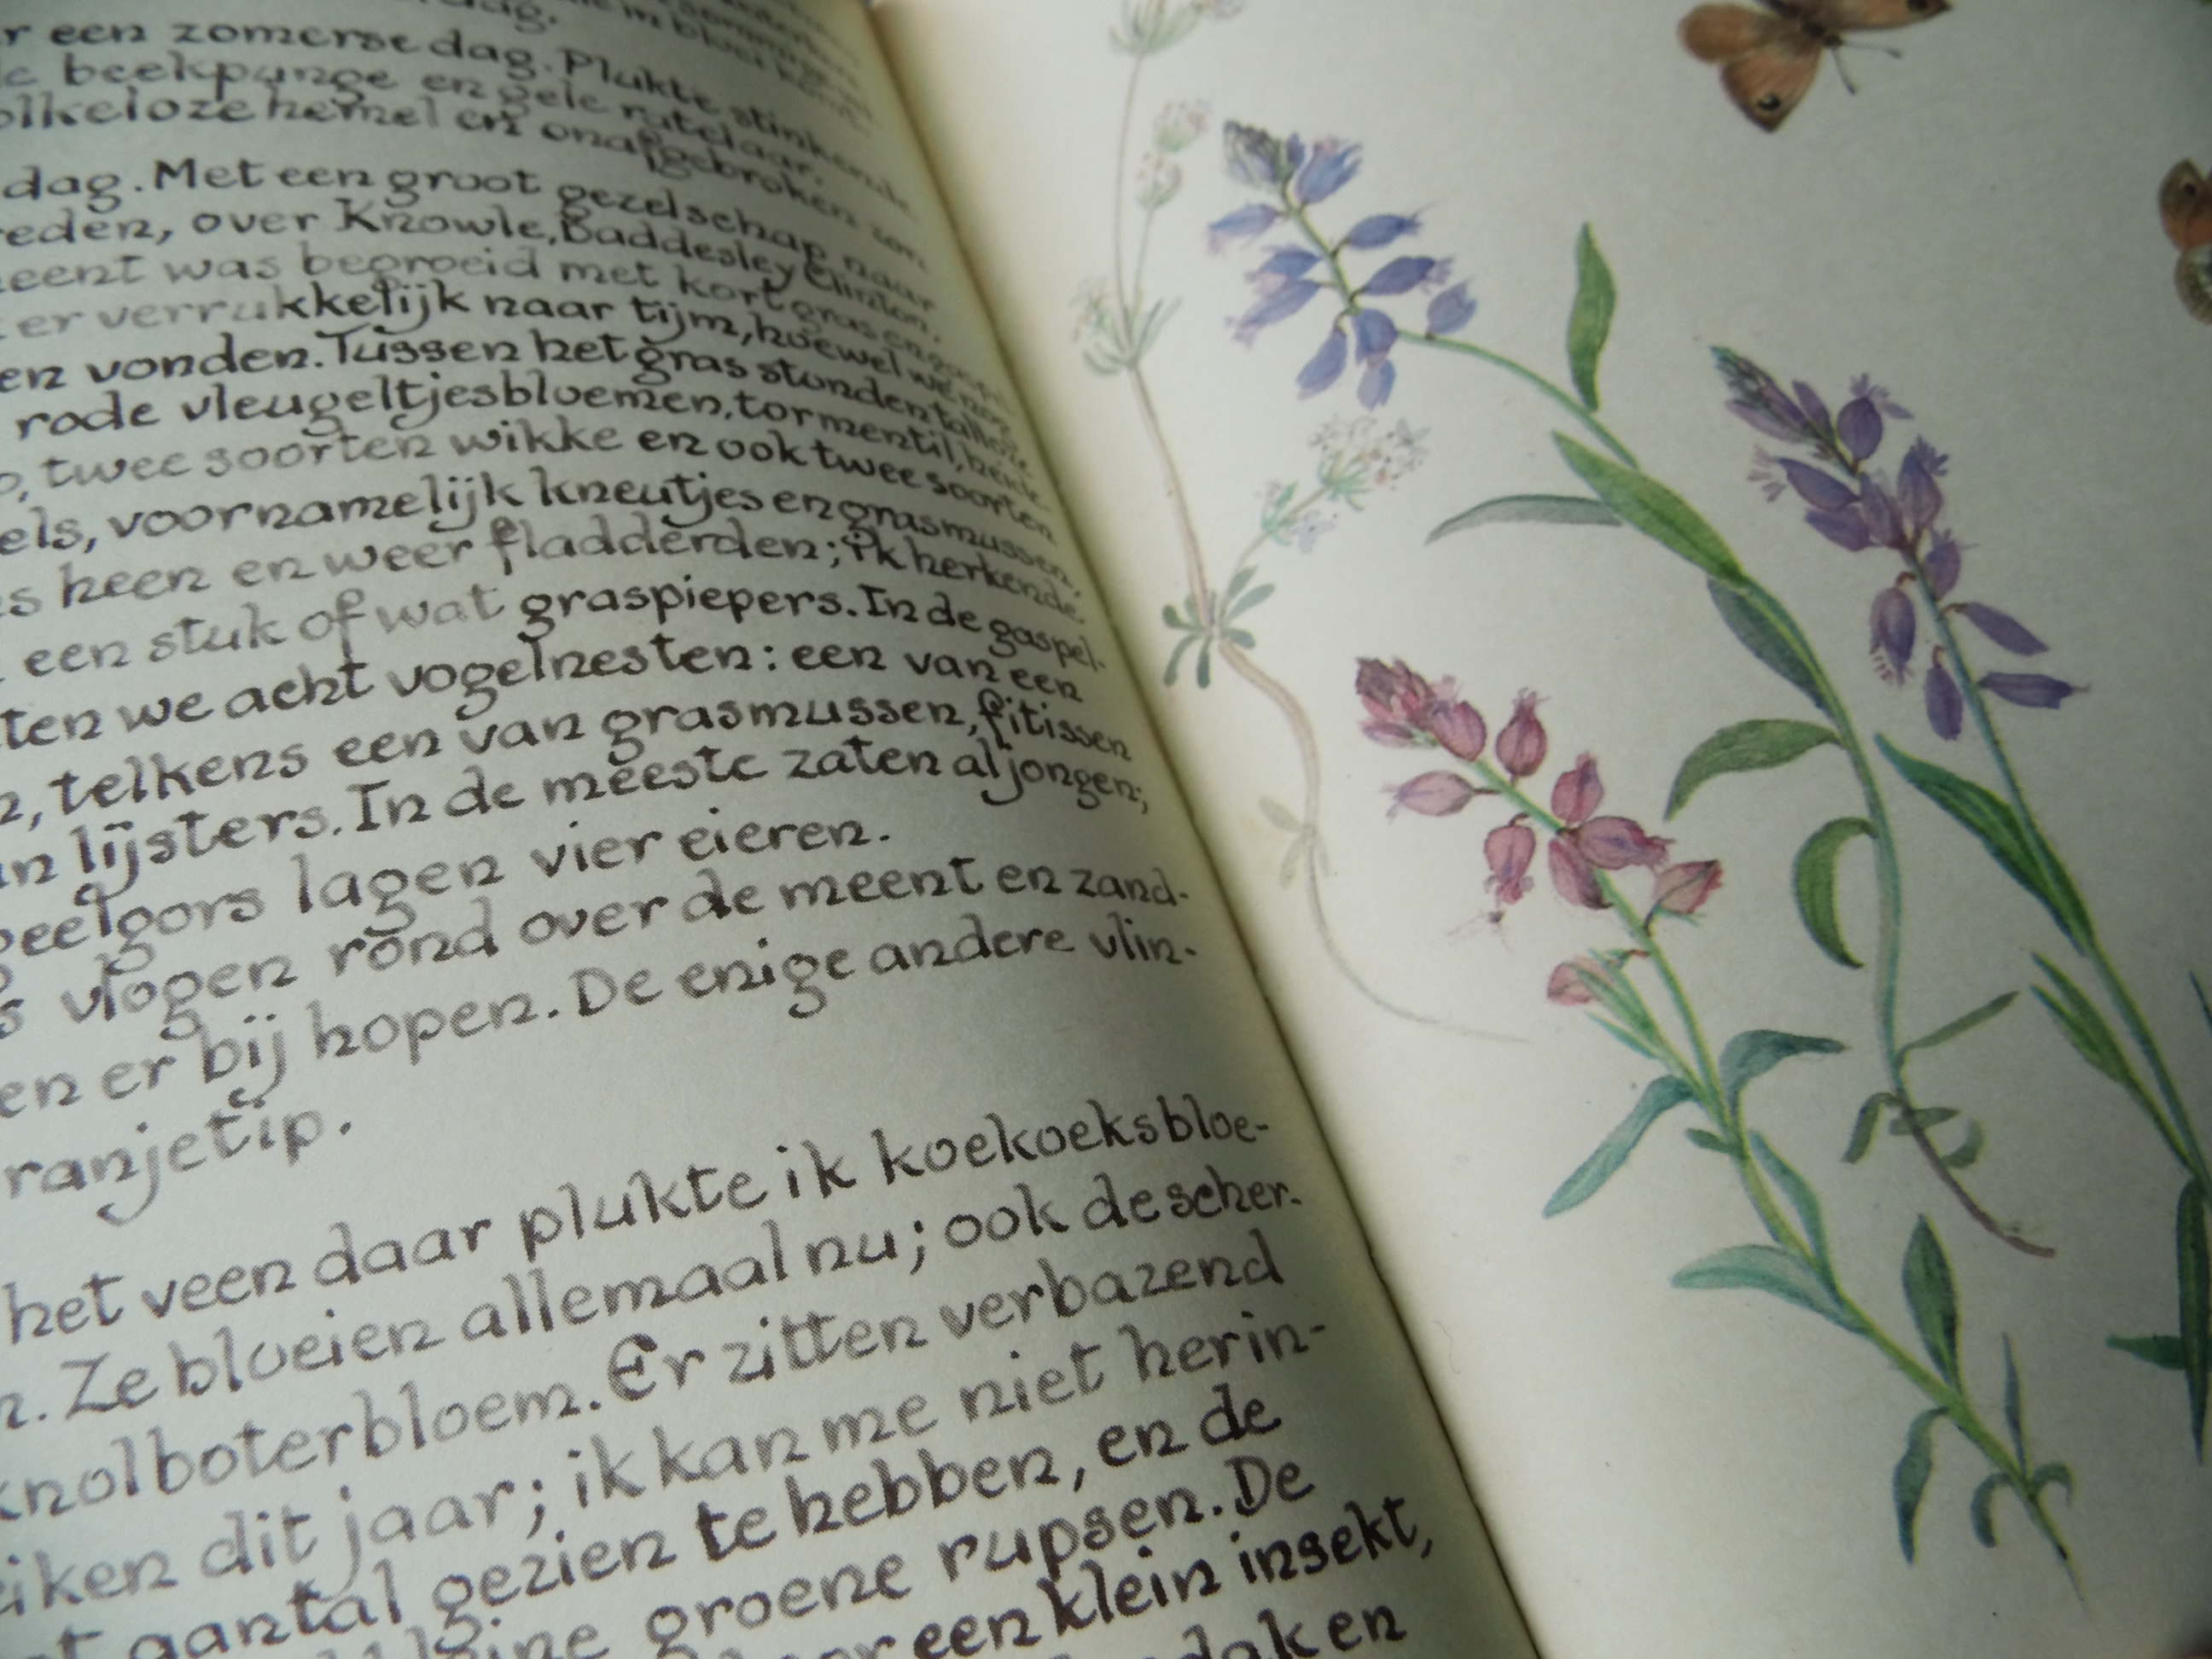 dag.
een zomerse dag. Plukte stinkende
beekpunge en gele ratelaar.
olkeloze hemel en onafgebroken zon
dag. Met een groot gezelschap naar
reden, over Knowle, Baddesley Clinton,
eent was begroeid met kort gras en gaspel
er verrukkelijk naar tijm, hoewel we nog
en vonden. Tussen het gras stonden talloze
rode vleugeltjesbloemen, tormentil, heide
o, twee soorten wikke en ook twee soorten
els, voornamelijk kneutjes en grasmussen,
s heen en weer fladderden; ik herkende
een stuk of wat graspiepers. In de gaspel-
ten we acht vogelnesten: een van een
n, telkens een van grasmussen, fitissen
an lijsters. In de meeste zaten al jongen;
geelgors lagen vier eieren.
s vlogen rond over de meent en zand-
en er bij hopen. De enige andere vlin-
ranjetip.
het veen daar plukte ik koekoeksbloe-
n. Ze bloeien allemaal nu; ook de scher-
knolboterbloem. Er zitten verbazend
eiken dit jaar; ik kan me niet herin-
t aantal gezien te hebben, en de
ine groene rupsen. De
een klein insekt,
dak en